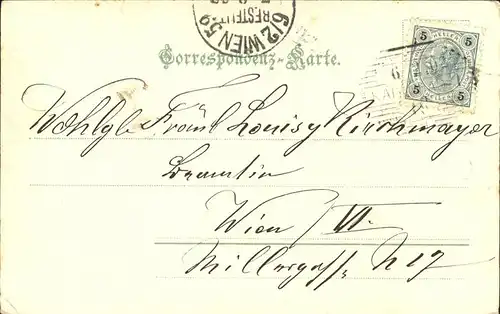 6/2 WIEN 59
BESTELLT
Correspondenz-Karte.
5 5
5 5
Wohlgb. Fräul. Louise Kirchmayer
Beamtin
Wien VI.
Millergasse N 17